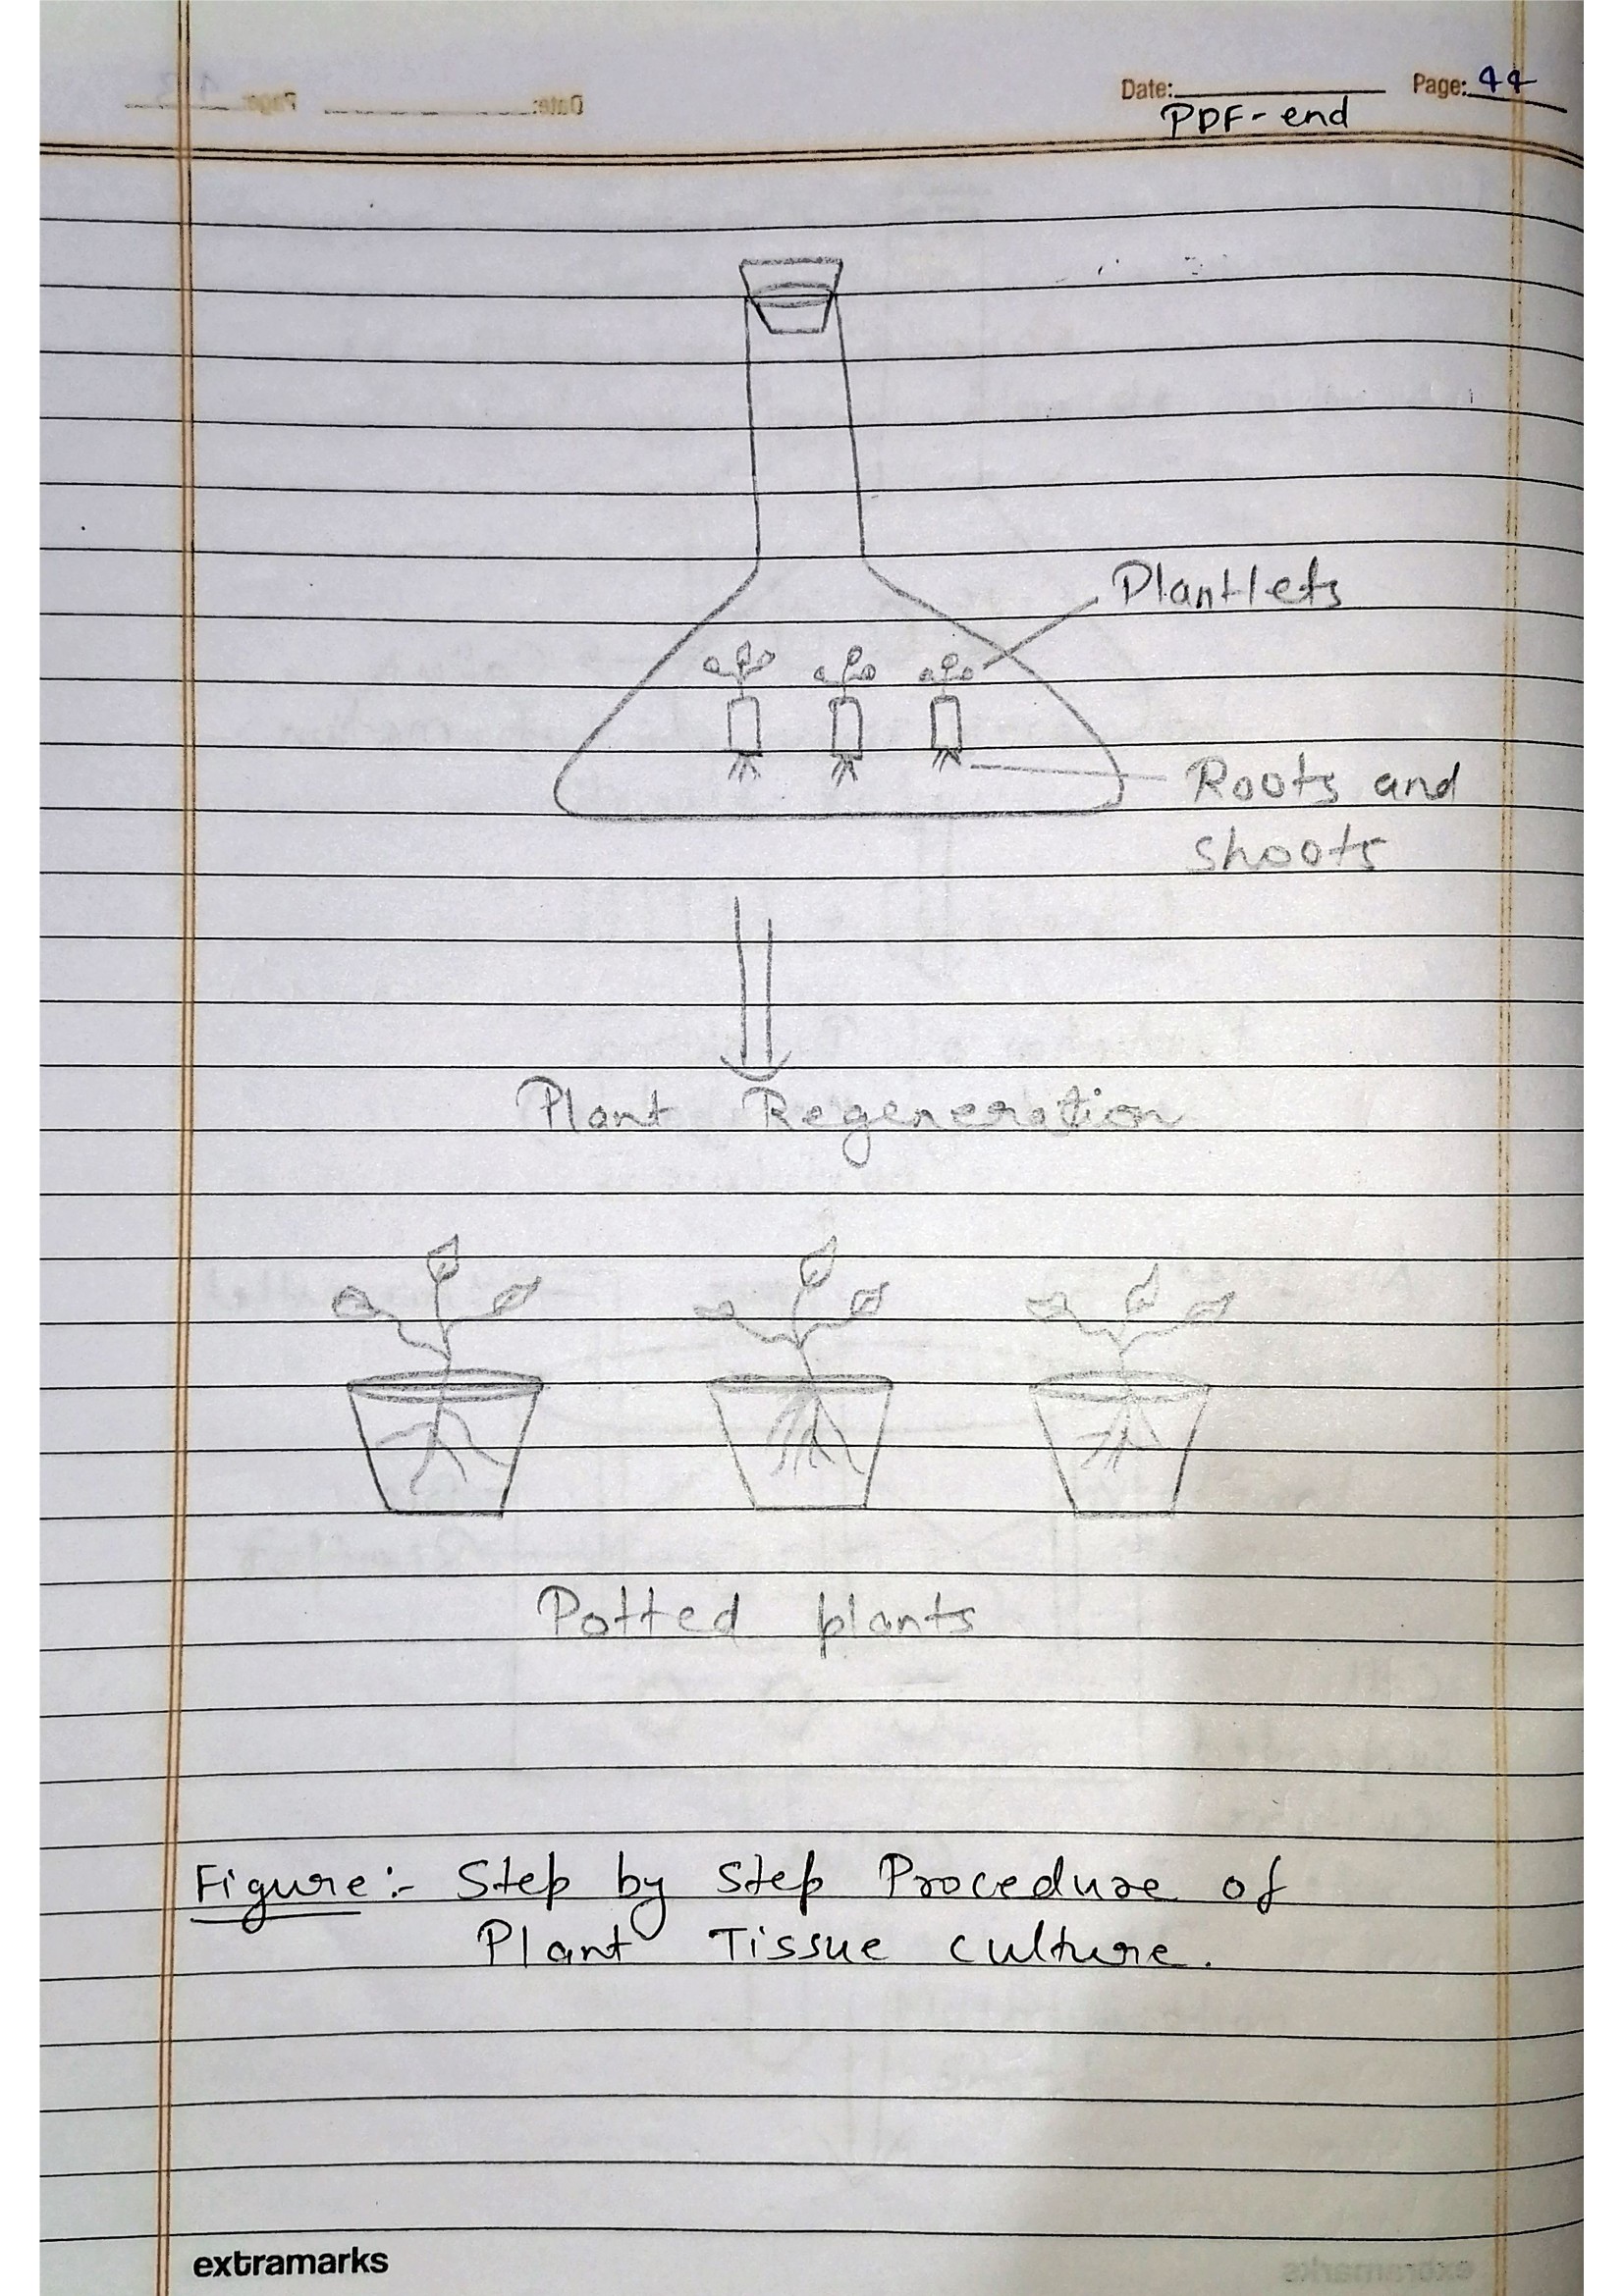 Date: Page: 44
PDF-end
Plantlets
Roots and
shoots
Plant Regeneration
Potted plants
Figure:- Step by Step Procedure of
Plant Tissue culture.
extramarks